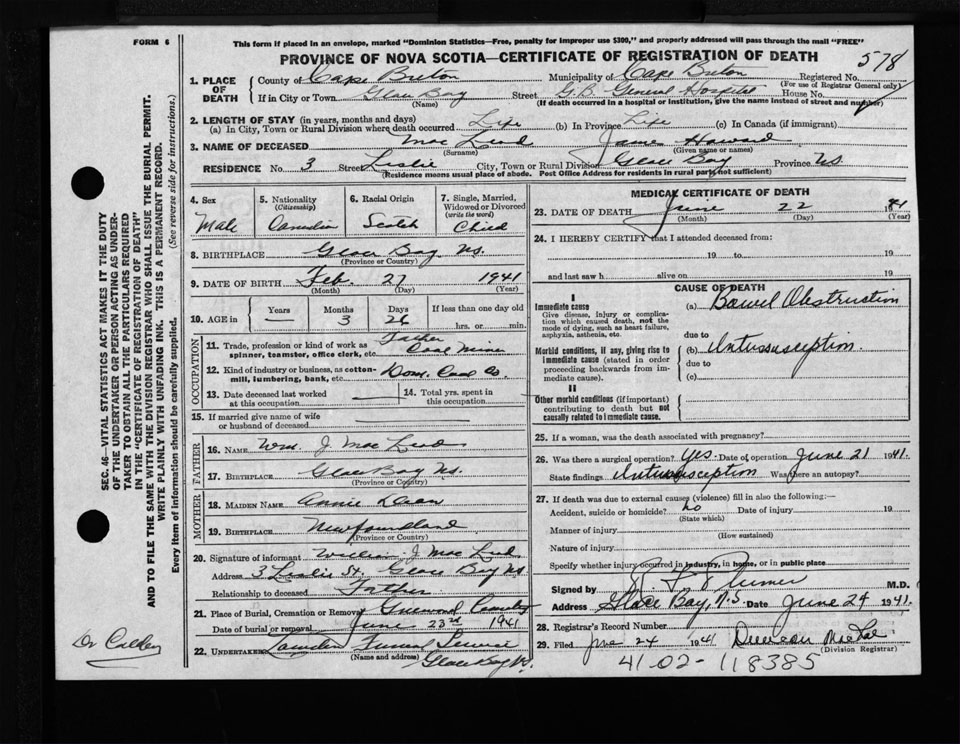 FORM 6
This form if placed in an envelope, marked "Dominion Statistics—Free, penalty for improper use $300," and properly addressed will pass through the mail "FREE"
PROVINCE OF NOVA SCOTIA—CERTIFICATE OF REGISTRATION OF DEATH
578
1. PLACE OF DEATH County of Cape Breton Municipality of Cape Breton Registered No.
(For use of Registrar General only)
If in City or Town Glace Bay Street G.B. General Hospital House No.
(Name) (If death occurred in a hospital or institution, give the name instead of street and number)
2. LENGTH OF STAY (in years, months and days)
(a) In City, Town or Rural Division where death occurred Life (b) In Province Life (c) In Canada (if immigrant)
3. NAME OF DECEASED Mac Leod James Howard
(Surname) (Given name or names)
RESIDENCE No. 3 Street Leslie City, Town or Rural Division Glace Bay Province NS.
(Residence means usual place of abode. Post Office Address for residents in rural parts not sufficient)
4. Sex Male
5. Nationality (Citizenship) Canadian
6. Racial Origin Scotch
7. Single, Married, Widowed or Divorced (write the word) Child
8. BIRTHPLACE Glace Bay NS.
(Province or Country)
9. DATE OF BIRTH Feb. 27 1941
(Month) (Day) (Year)
10. AGE in Years — Months 3 Days 26 If less than one day
hrs. or min.
OCCUPATION
11. Trade, profession or kind of work as spinner, teamster, office clerk, etc. Father Coal Miner
12. Kind of industry or business, as cotton-mill, lumbering, bank, etc. Dom. Coal Co.
13. Date deceased last worked at this occupation —
14. Total yrs. spent in this occupation —
15. If married give name of wife or husband of deceased
FATHER
16. NAME Wm. J. Mac Leod
17. BIRTHPLACE Glace Bay NS.
MOTHER
18. MAIDEN NAME Annie
19. BIRTHPLACE Newfoundland
(Province or Country)
20. Signature of informant William J. Mac Leod
Address 3 Leslie St. Glace Bay NS
Relationship to deceased Father
21. Place of Burial, Cremation or Removal Greenwood Cemetery
Date of burial or removal June 23rd 1941
22. UNDERTAKER Funeral Service
(Name and address) Glace Bay NS.
MEDICAL CERTIFICATE OF DEATH
23. DATE OF DEATH June 22 1941
(Month) (Day) (Year)
24. I HEREBY CERTIFY that I attended deceased from:
19 to 19
and last saw h alive on 19
CAUSE OF DEATH
I
Immediate cause
Give disease, injury, or complication which caused death, not the mode of dying, such as heart failure, asphyxia, asthenia, etc.
(a) Bowel Obstruction
due to
Morbid conditions, if any, giving rise to immediate cause (stated in order proceeding backwards from immediate cause).
(b) Intussusception.
due to
(c)
II
Other morbid conditions (if important) contributing to death but not causally related to immediate cause.
25. If a woman, was the death associated with pregnancy?
26. Was there a surgical operation? Yes. Date of operation June 21 1941.
State findings Intussusception Was there an autopsy?
27. If death was due to external causes (violence) fill in also the following:—
Accident, suicide or homicide? no Date of injury 19
(State which)
Manner of injury
(How sustained)
Nature of injury
Specify whether injury occurred in industry, in home, or in public place
Signed by M.D.
Address Glace Bay, N.S. Date June 24 1941.
28. Registrar's Record Number
29. Filed June 24 1941 Duncan
(Division Registrar)
41-02-118385
SEC. 46—VITAL STATISTICS ACT MAKES IT THE DUTY
OF THE UNDERTAKER OR PERSON ACTING AS UNDER-
TAKER TO OBTAIN ALL THE PARTICULARS REQUIRED
IN THE "CERTIFICATE OF REGISTRATION OF DEATH"
AND TO FILE THE SAME WITH THE DIVISION REGISTRAR WHO SHALL ISSUE THE BURIAL PERMIT.
WRITE PLAINLY WITH UNFADING INK. THIS IS A PERMANENT RECORD.
Every item of information should be carefully supplied. (See reverse side for instructions.)
Dr